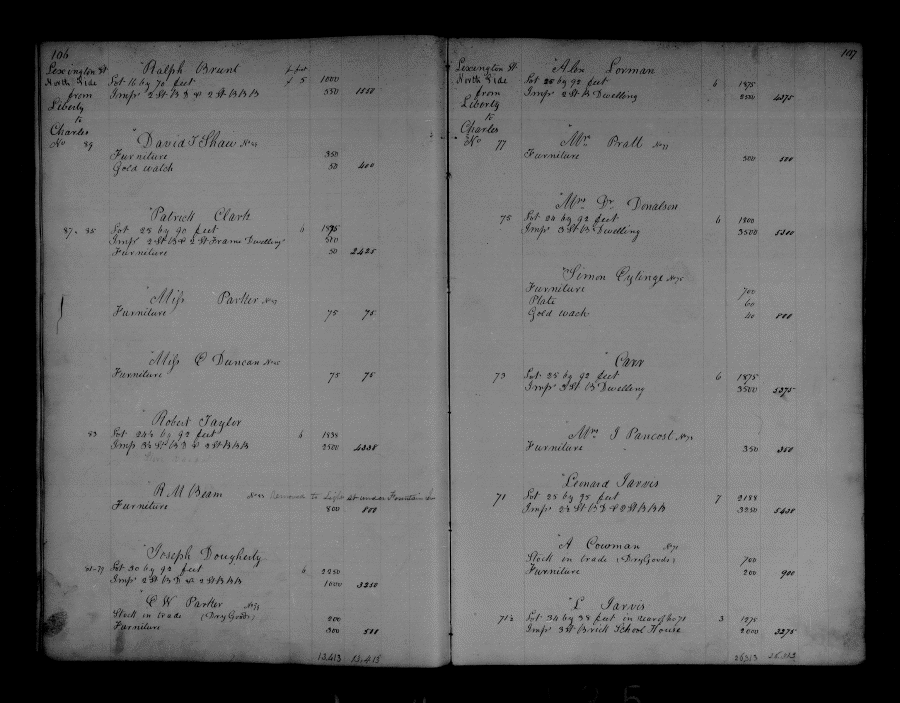 106
Lexington St
North Side
from
Liberty
to
Charles
No 89
" Ralph Brunt
p foot
Lot 16 by 70 feet 5 1000
Imp 2 St B D & 2 St B B B 550 1550
" David T Shaw No 89
Furniture 350
Gold watch 50 400
" Patrick Clark
87 . 85 Lot 25 by 90 feet 6 1875
Imp 2 St B & 2 St Frame Dwelling 500
Furniture 50 2425
" Miss Parker
Furniture 75 75
" Miss C Duncan
Furniture 75 75
" Robert Taylor
83 Lot 24½ by 92 feet 6 1838
Imp 3½ St B D & 2 St B B B 2500 4338
" R M Beam No 83 Removed to Light St under Fountain
Furniture 800 800
" Joseph Dougherty
81-79 Lot 30 by 92 feet 6 2250
Imp 2 St B D & 2 St B B B 1000 3250
" C W Parker No 79
Stock in trade (Dry Goods) 200
Furniture 300 500
13,413 13,413
107
Lexington St
North Side
from
Liberty
to
Charles
No 77
" Alen Lorman
Lot 25 by 92 feet 6 1875
Imp 2 St B Dwelling 2500 4375
" Mrs. Pratt No 77
Furniture 500 500
" Mrs. Dr. Donalson
75 Lot 24 by 92 feet 6 1800
Imp 3 St B Dwelling 3500 5300
" Simon Eytinge No 75
Furniture 700
Plate 60
Gold wach 40 800
" Carr
73 Lot 25 by 92 feet 6 1875
Imp 3 St B Dwelling 3500 5375
" Mrs. J Pancost No 73
Furniture 350 350
" Leonard Jarvis
71 Lot 25 by 98 feet 7 2188
Imp 2½ St B D & 2 St B B B 3250 5438
" A Cowman No 71
Stock in trade (Dry Goods) 700
Furniture 200 900
" L Jarvis
71½ Lot 34 by 38 feet in rear of No 71 3 1275
Imp 3 St Brick School House 2000 3275
26,313 26,313